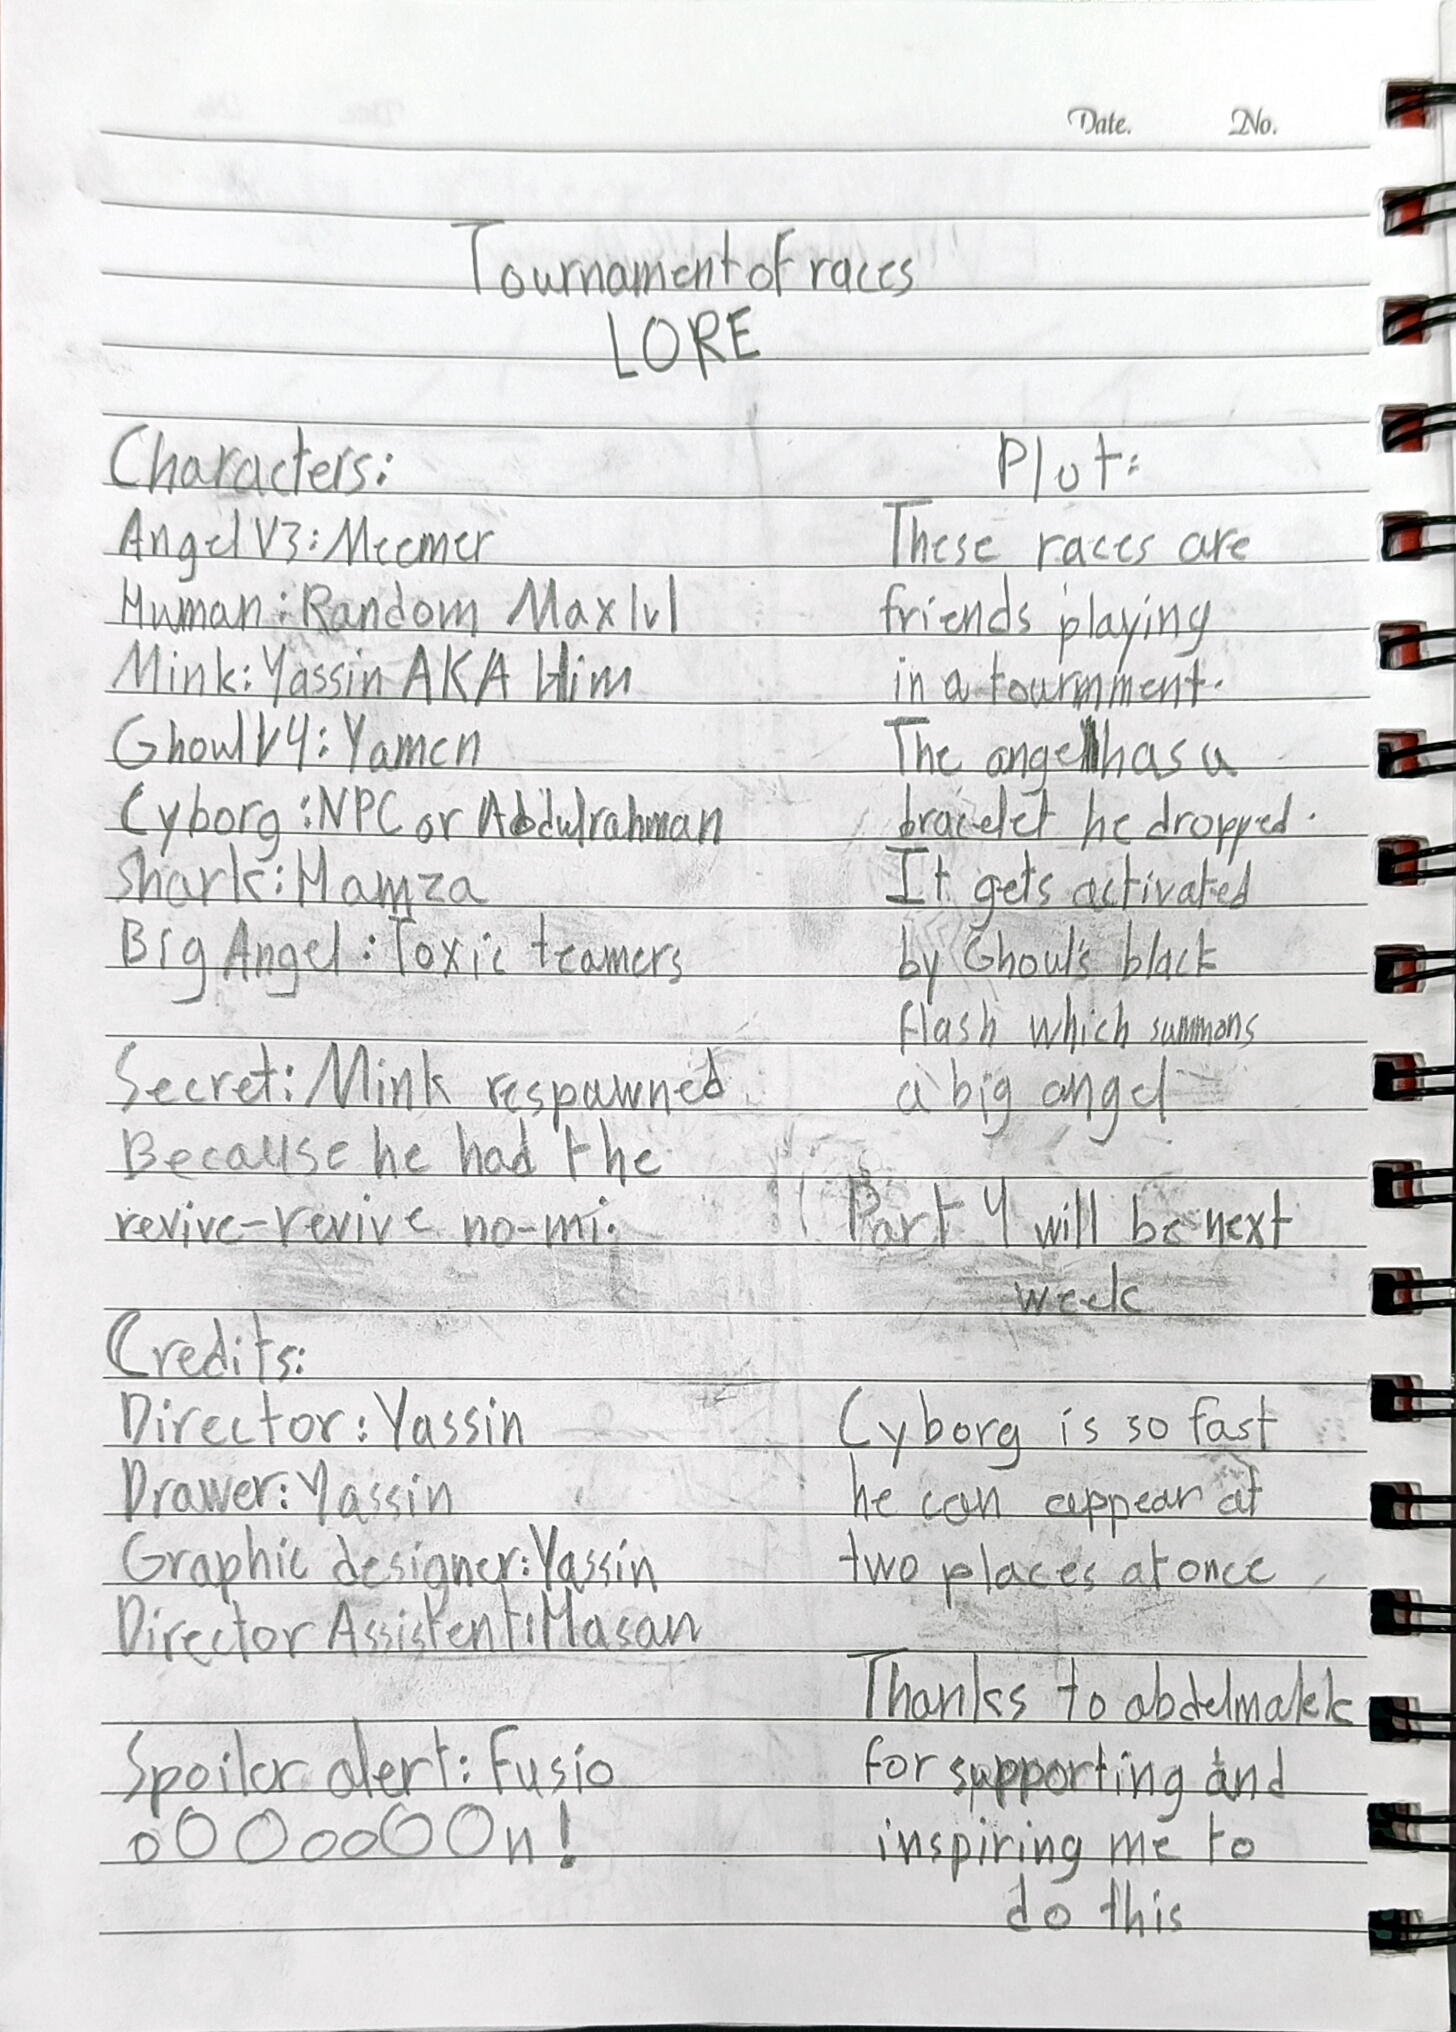 Date. No.
Tournament of races
LORE
Characters:
Angel V3: Meemer
Human: Random Max lvl
Mink: Yassin AKA Him
Ghoul V4: Yamen
Cyborg: NPC or Abdulrahman
Shark: Hamza
Big Angel: Toxic teamers
Secret: Mink respawned
Because he had the
revive-revive no-mi.
Credits:
Director: Yassin
Drawer: Yassin
Graphic designer: Yassin
Director Assistent: Hasan
Spoiler alert: Fusio
oOOooOOn!
Plot:
These races are
friends playing
in a tournment.
The angel has a
bracelet he dropped.
It gets activated
by Ghoul's black
flash which summons
a big angel
Part 4 will be next
week
Cyborg is so fast
he can appear at
two places at once
Thanks to abdelmalek
for supporting and
inspiring me to
do this